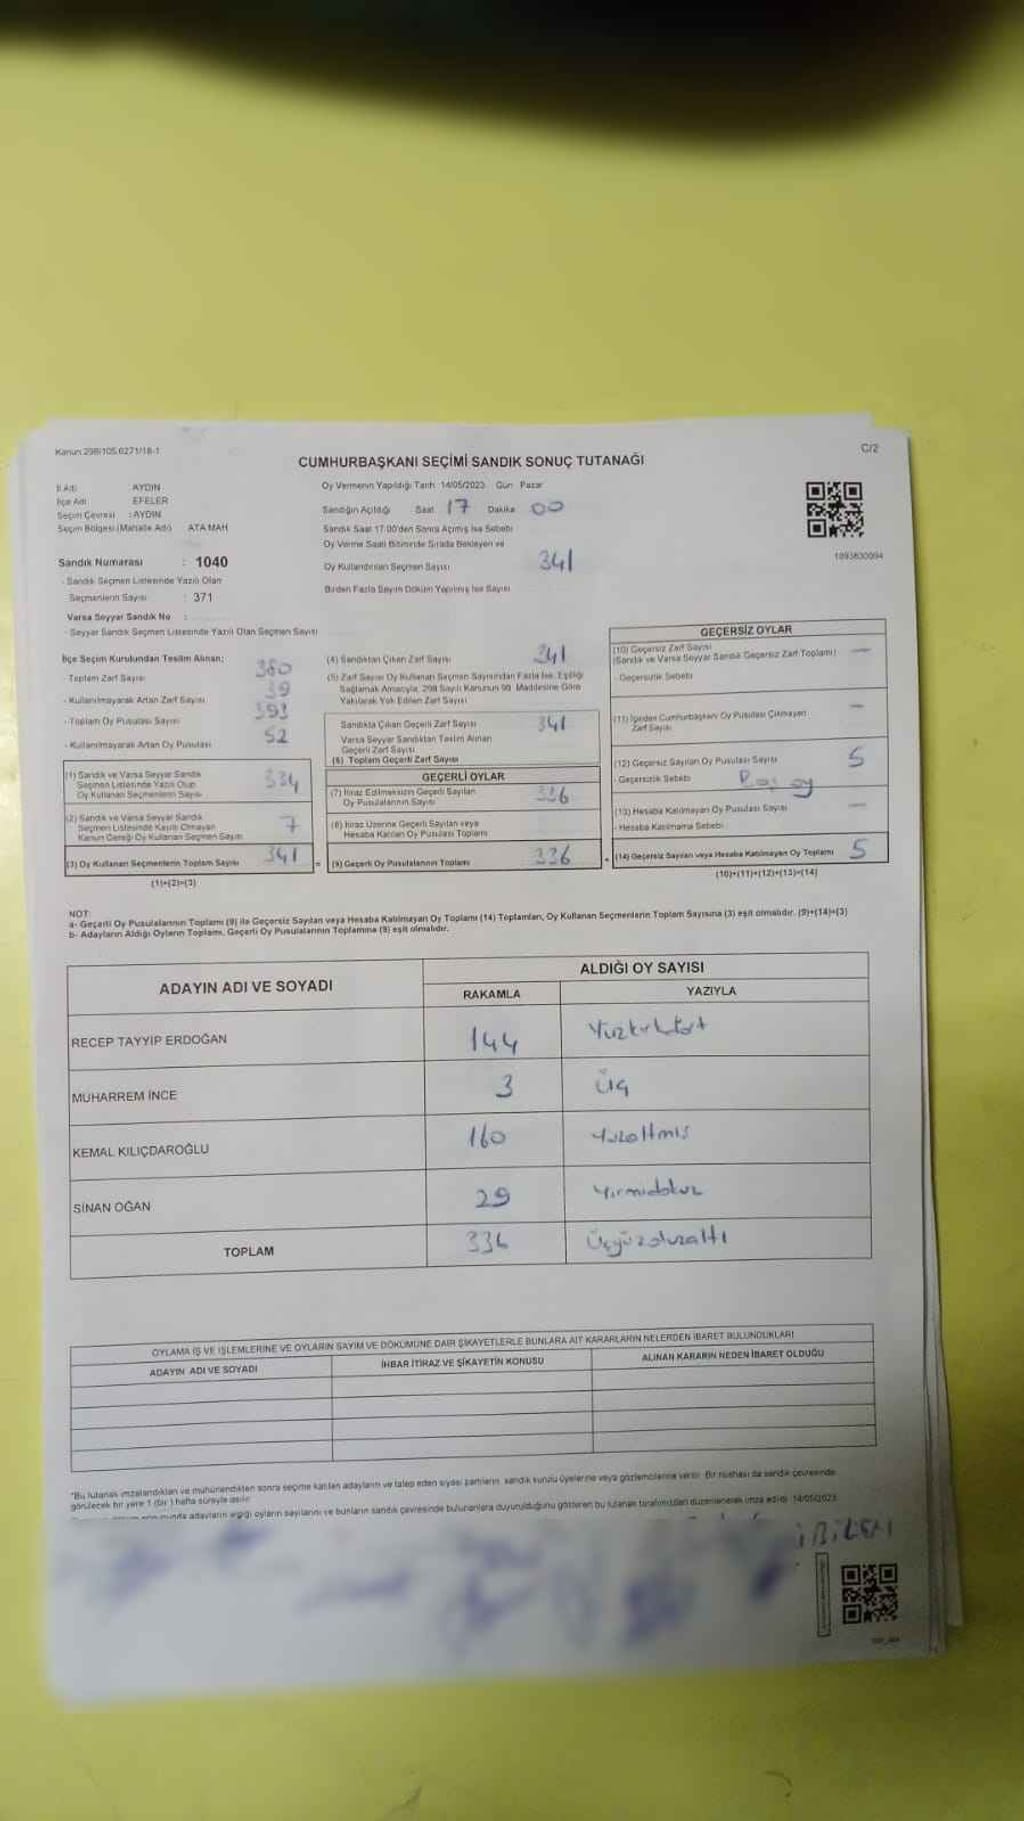 Kanun 298/105.6271/18-1
C/2
CUMHURBAŞKANI SEÇİMİ SANDIK SONUÇ TUTANAĞI
İl Adı : AYDIN
İlçe Adı : EFELER
Seçim Çevresi : AYDIN
Seçim Bölgesi (Mahalle Adı) ATA MAH
Sandık Numarası : 1040
- Sandık Seçmen Listesinde Yazılı Olan
Seçmenlerin Sayısı : 371
Varsa Seyyar Sandık No :
- Seyyar Sandık Seçmen Listesinde Yazılı Olan Seçmen Sayısı
Oy Vermenin Yapıldığı Tarih 14/05/2023 Gün Pazar
Sandığın Açıldığı Saat 17 Dakika 00
Sandık Saat 17.00'den Sonra Açılmış İse Sebebi
Oy Verme Saati Bitiminde Sırada Bekleyen ve
Oy Kullandırılan Seçmen Sayısı 341
Birden Fazla Sayım Döküm Yapılmış İse Sayısı
İlçe Seçim Kurulundan Teslim Alınan;
- Toplam Zarf Sayısı 380
- Kullanılmayarak Artan Zarf Sayısı 39
- Toplam Oy Pusulası Sayısı 393
- Kullanılmayarak Artan Oy Pusulası 52
(1) Sandık ve Varsa Seyyar Sandık
Seçmen Listesinde Yazılı Olup
Oy Kullanan Seçmenlerin Sayısı 334
(2) Sandık ve Varsa Seyyar Sandık
Seçmen Listesinde Kayıtlı Olmayan
Kanun Gereği Oy Kullanan Seçmen Sayısı 7
(3) Oy Kullanan Seçmenlerin Toplam Sayısı 341
(1)+(2)=(3)
(4) Sandıktan Çıkan Zarf Sayısı 341
(5) Zarf Sayısı Oy Kullanan Seçmen Sayısından Fazla İse, Eşitliği
Sağlamak Amacıyla, 298 Sayılı Kanunun 98. Maddesine Göre
Yakılarak Yok Edilen Zarf Sayısı
Sandıkta Çıkan Geçerli Zarf Sayısı 341
Varsa Seyyar Sandıktan Teslim Alınan
Geçerli Zarf Sayısı
(6) Toplam Geçerli Zarf Sayısı
GEÇERLİ OYLAR
(7) İtiraz Edilmeksizin Geçerli Sayılan
Oy Pusulalarının Sayısı 336
(8) İtiraz Üzerine Geçerli Sayılan veya
Hesaba Katılan Oy Pusulası Toplamı
= (9) Geçerli Oy Pusulalarının Toplamı 336
GEÇERSİZ OYLAR
(10) Geçersiz Zarf Sayısı
(Sandık ve Varsa Seyyar Sandık Geçersiz Zarf Toplamı) —
- Geçersizlik Sebebi
(11) İçinden Cumhurbaşkanı Oy Pusulası Çıkmayan
Zarf Sayısı —
(12) Geçersiz Sayılan Oy Pusulası Sayısı 5
- Geçersizlik Sebebi Boş oy
(13) Hesaba Katılmayan Oy Pusulası Sayısı —
- Hesaba Katılmama Sebebi
+ (14) Geçersiz Sayılan veya Hesaba Katılmayan Oy Toplamı 5
(10)+(11)+(12)+(13)=(14)
NOT:
a- Geçerli Oy Pusulalarının Toplamı (9) ile Geçersiz Sayılan veya Hesaba Katılmayan Oy Toplamı (14) Toplamları, Oy Kullanan Seçmenlerin Toplam Sayısına (3) eşit olmalıdır. (9)+(14)=(3)
b- Adayların Aldığı Oyların Toplamı, Geçerli Oy Pusulalarının Toplamına (9) eşit olmalıdır.
ADAYIN ADI VE SOYADI ALDIĞI OY SAYISI
RAKAMLA YAZIYLA
RECEP TAYYİP ERDOĞAN 144 Yüzkırkdört
MUHARREM İNCE 3 Üç
KEMAL KILIÇDAROĞLU 160 Yüzaltmış
SİNAN OĞAN 29 Yirmidokuz
TOPLAM 336 Üçyüzotuzaltı
OYLAMA İŞ VE İŞLEMLERİNE VE OYLARIN SAYIM VE DÖKÜMÜNE DAİR ŞİKAYETLERLE BUNLARA AİT KARARLARIN NELERDEN İBARET BULUNDUKLARI
ADAYIN ADI VE SOYADI İHBAR İTİRAZ VE ŞİKAYETİN KONUSU ALINAN KARARIN NEDEN İBARET OLDUĞU
"Bu tutanak imzalandıktan ve mühürlendikten sonra seçime katılan adayların ve talep eden siyasi partilerin, sandık kurulu üyelerine veya gözlemcilerine verilir. Bir nüshası da sandık çevresinde
görülecek bir yere 1 (bir) hafta süreyle asılır.
adayların aldığı oyların sayılarını ve bunların sandık çevresinde bulunanlara duyurulduğunu gösteren bu tutanak tarafımızdan düzenlenerek imza edildi. 14/05/2023